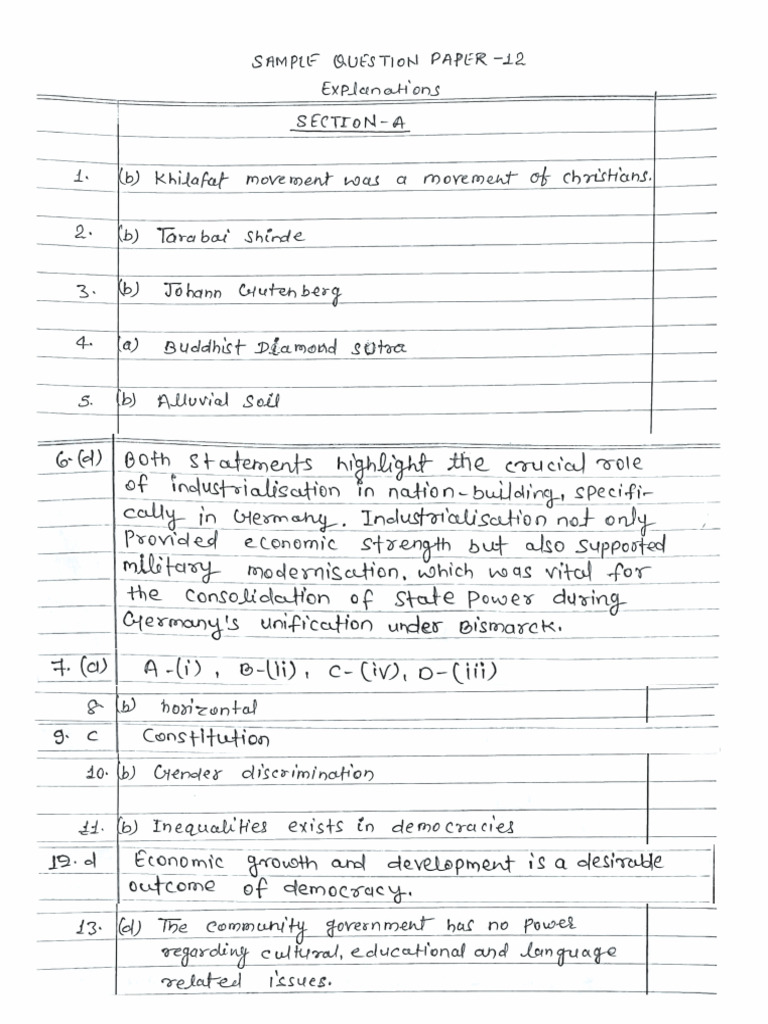 SAMPLE QUESTION PAPER -12
Explanations
SECTION-A
1. (b) Khilafat movement was a movement of christians.
2. (b) Tarabai Shinde
3. (b) Johann Gutenberg
4. (a) Buddhist Diamond sutra
5. (b) Alluvial soil
6.(d) Both statements highlight the crucial role
of industrialisation in nation-building, specifi-
cally in Germany. Industrialisation not only
Provided economic strength but also supported
military modernisation, which was vital for
the consolidation of state power during
Germany's unification under Bismarck.
7. (a) A-(i), B-(ii), C-(iv), D-(iii)
8. (b) horizontal
9. c Constitution
10. (b) Gender discrimination
11. (b) Inequalities exists in democracies
12. d Economic growth and development is a desirable
outcome of democracy.
13. (d) The community government has no power
regarding cultural, educational and language
related issues.